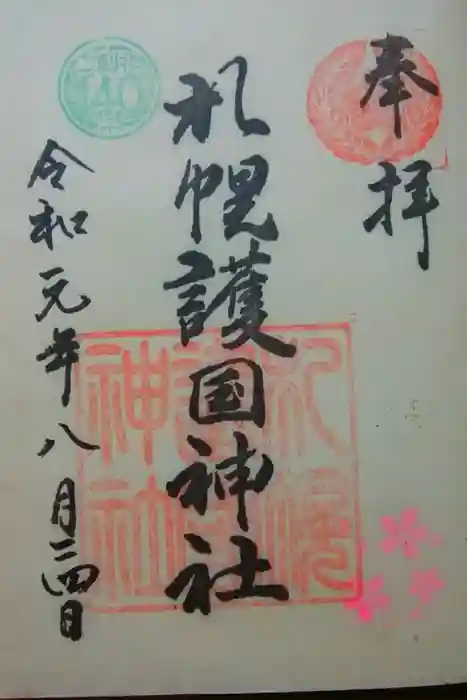 奉拝
札幌護国神社
令和元年八月二四日
札幌護国神社